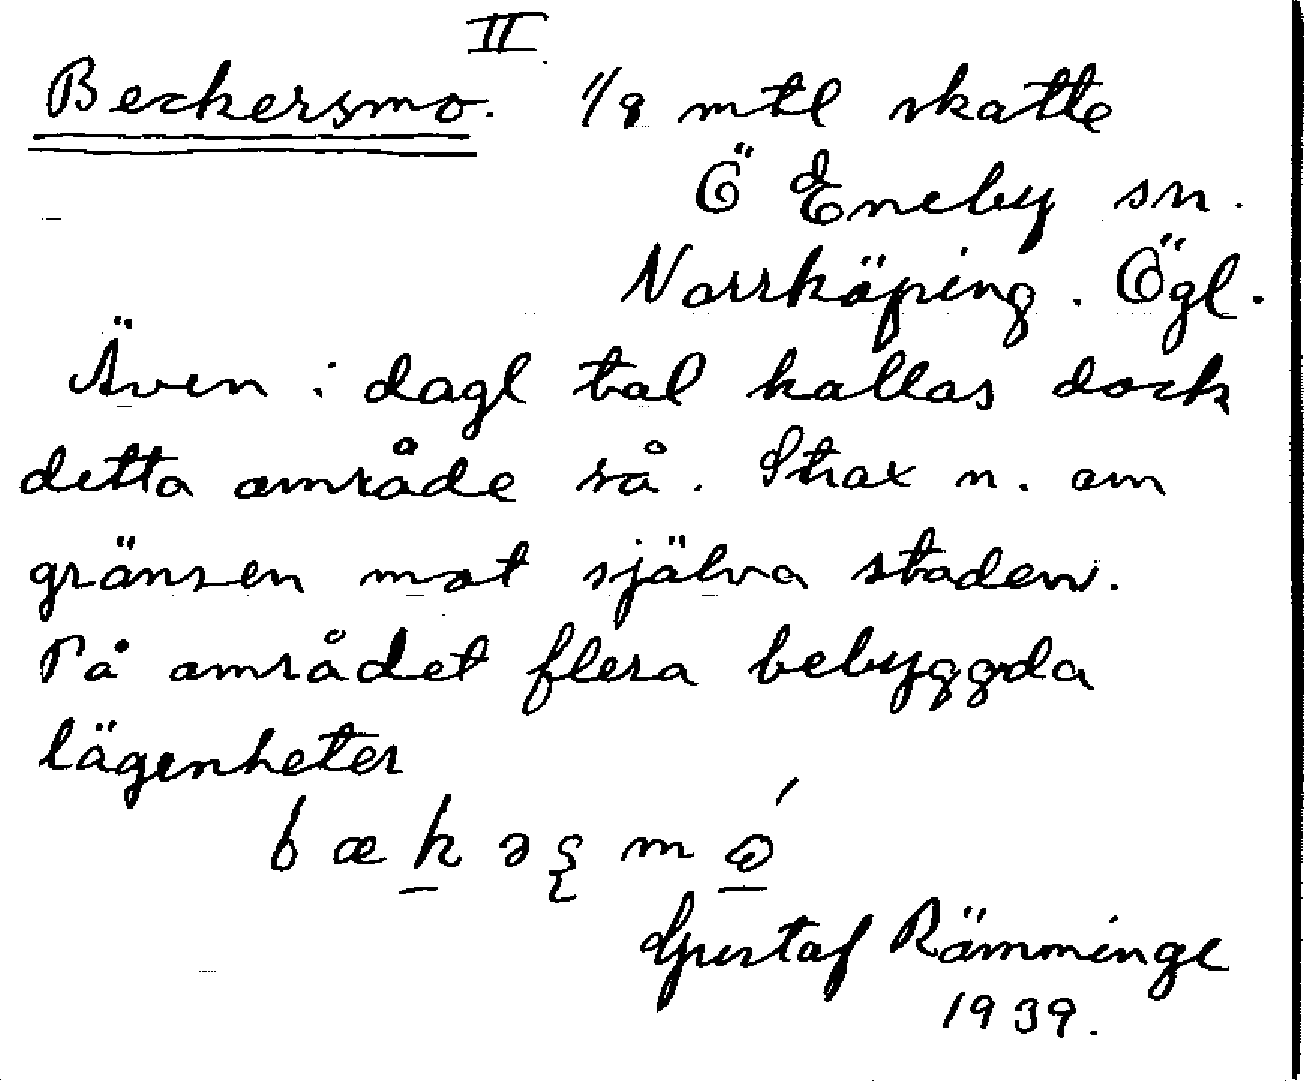 II
Beckersmo. 1/8 mtl skatte
Ö Eneby sn.
Norrköping. Ögl.
Även i dagl tal kallas dock
detta område så. Strax n. om
gränsen mot själva staden.
På området flera bebyggda
lägenheter
bækəʂmó
Gustaf Rämminge
1939.